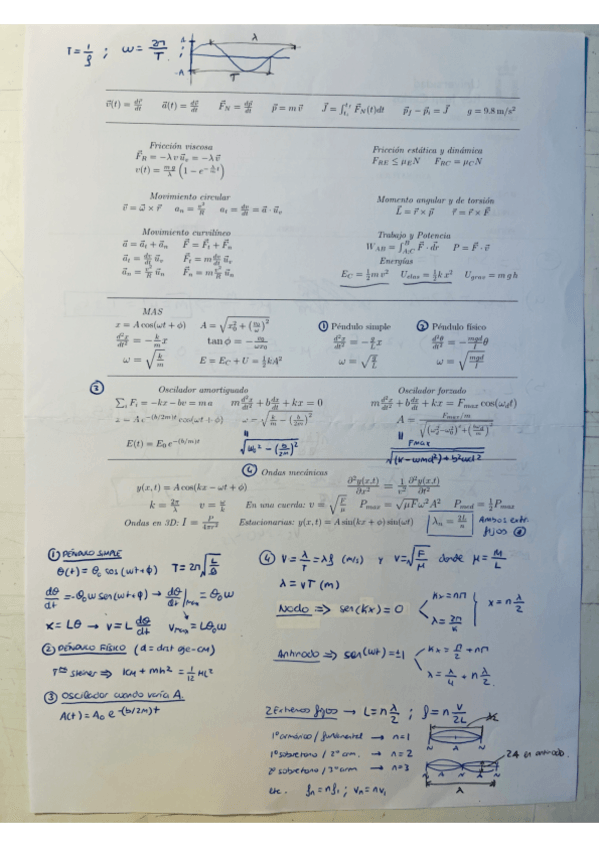 T = 1/f ; ω = 2π/T ;
A
λ
-A
T
v⃗(t) = dr⃗/dt a⃗(t) = dv⃗/dt F⃗_N = dp⃗/dt p⃗ = m v⃗ J⃗ = ∫ F⃗_N(t)dt p⃗_f − p⃗_i = J⃗ g = 9.8 m/s²
Fricción viscosa
F⃗_R = −λ v u⃗_v = −λ v⃗
v(t) = mg/λ (1 − e^{−λt/m})
Fricción estática y dinámica
F_RE ≤ μ_E N F_RC = μ_C N
Movimiento circular
v⃗ = ω⃗ × r⃗ a_n = v²/R a_t = dv/dt = a⃗ · u⃗_v
Momento angular y de torsión
L⃗ = r⃗ × p⃗ τ⃗ = r⃗ × F⃗
Movimiento curvilíneo
a⃗ = a⃗_t + a⃗_n F⃗ = F⃗_t + F⃗_n
a⃗_t = dv/dt u⃗_v F⃗_t = m dv/dt u⃗_v
a⃗_n = v²/R u⃗_n F⃗_n = m v²/R u⃗_n
Trabajo y Potencia
W_AB = ∫ F⃗ · dr⃗ P = F⃗ · v⃗
Energías
E_C = ½ m v² U_elas = ½ k x² U_grav = m g h
MAS
x = A cos(ωt + φ) A = √(x₀² + (v₀/ω)²)
d²x/dt² = −k/m x tan φ = −v₀/ωx₀
ω = √(k/m) E = E_C + U = ½kA²
① Péndulo simple
d²x/dt² = −g/L x
ω = √(g/L)
② Péndulo físico
d²θ/dt² = −mgd/I θ
ω = √(mgd/I)
③ Oscilador amortiguado
∑ F_i = −kx − bv = m a m d²x/dt² + b dx/dt + kx = 0
x = A e^{−(b/2m)t} cos(ωt + φ) ω = √(k/m − (b/2m)²)
E(t) = E₀ e^{−(b/m)t} √(ω₀² − (b/2m)²)
Oscilador forzado
m d²x/dt² + b dx/dt + kx = F_max cos(ω_d t)
A = (F_max/m)/√((ω_d² − ω₀²)² + (bω_d/m)²)
Fmax/√((k − mωd²)² + b²ωd²)
④ Ondas mecánicas
y(x, t) = A cos(kx − ωt + φ) ∂²y(x,t)/∂x² = 1/v² ∂²y(x,t)/∂t²
k = 2π/λ v = ω/k En una cuerda: v = √(F/μ) P_max = √(μF) ω² A² P_med = ½ P_max
Ondas en 3D: I = P/4πr² Estacionarias: y(x, t) = A sin(kx + φ) sin(ωt) λ_n = 2L/n Ambos extr. fijos
① PÉNDULO SIMPLE
θ(t) = θ₀ cos (ωt + φ) T = 2π√(L/g)
dθ/dt = −θ₀ω sen(ωt + φ) → dθ/dt|max = θ₀ω
x = Lθ → v = L dθ/dt v max = Lθ₀ω
② PÉNDULO FÍSICO (d = dist eje-CM)
T ma Steiner ⇒ ICM + mh² = 1/12 ML²
③ Oscilador cuando varía A.
A(t) = A₀ e^{−(b/2m)t}
④ V = λ/T = λf (m/s) y V = √(F/μ) donde μ = M/L
λ = vT (m)
Nodo ⇒ sen(kx) = 0
kx = nπ
λ = 2π/k
x = n λ/2
Antinodo ⇒ sen(ωt) = ±1
kx = π/2 + nπ
x = λ/4 + n λ/2
2 Extremos fijos → L = n λ/2 ; f = n V/2L
1º armónico / fundamental → n = 1
1º sobretono / 2º arm. → n = 2
2º sobretono / 3º arm → n = 3
etc. fn = nf₁ ; vn = nv₁
N A N
2A en antinodo.
N A N A N
λ